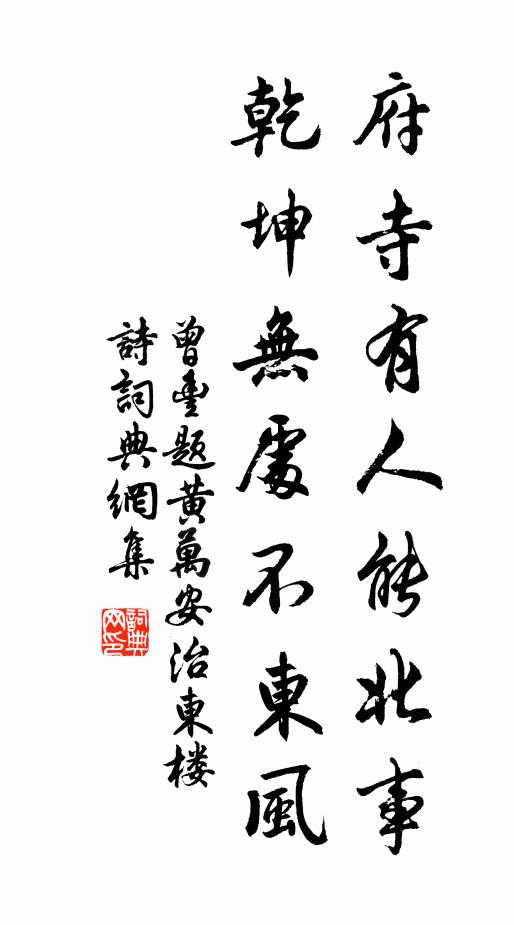 府寺有人能北事
乾坤無處不東風
曾豊題黃萬安治東楼
詩詞典網集
詞典網印